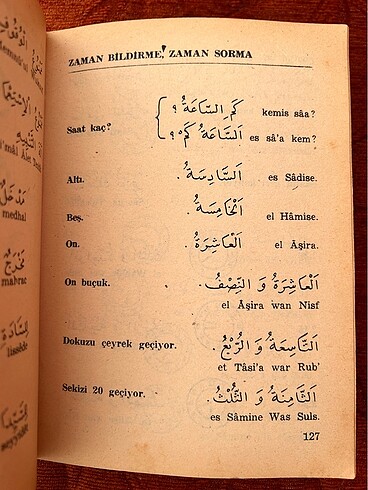 ZAMAN BİLDİRME, ZAMAN SORMA
Saat kaç?
كَمِ السَّاعَةُ ؟ kemis sâa?
اَلسَّاعَةُ كَمْ ؟ es sâ'a kem?
Altı. اَلسَّادِسَةُ . es Sâdise.
Beş. اَلْخَامِسَةُ . el Hâmise.
On. اَلْعَاشِرَةُ . el Âşira.
On buçuk. اَلْعَاشِرَةُ وَ النِّصْفُ .
el Âşira wan Nisf
Dokuzu çeyrek geçiyor. اَلتَّاسِعَةُ وَ الرُّبْعُ .
et Tâsi'a war Rub'
Sekizi 20 geçiyor. اَلثَّامِنَةُ وَ الثُّلُثُ .
es Sâmine Was Suls.
127
medhal
mahrac